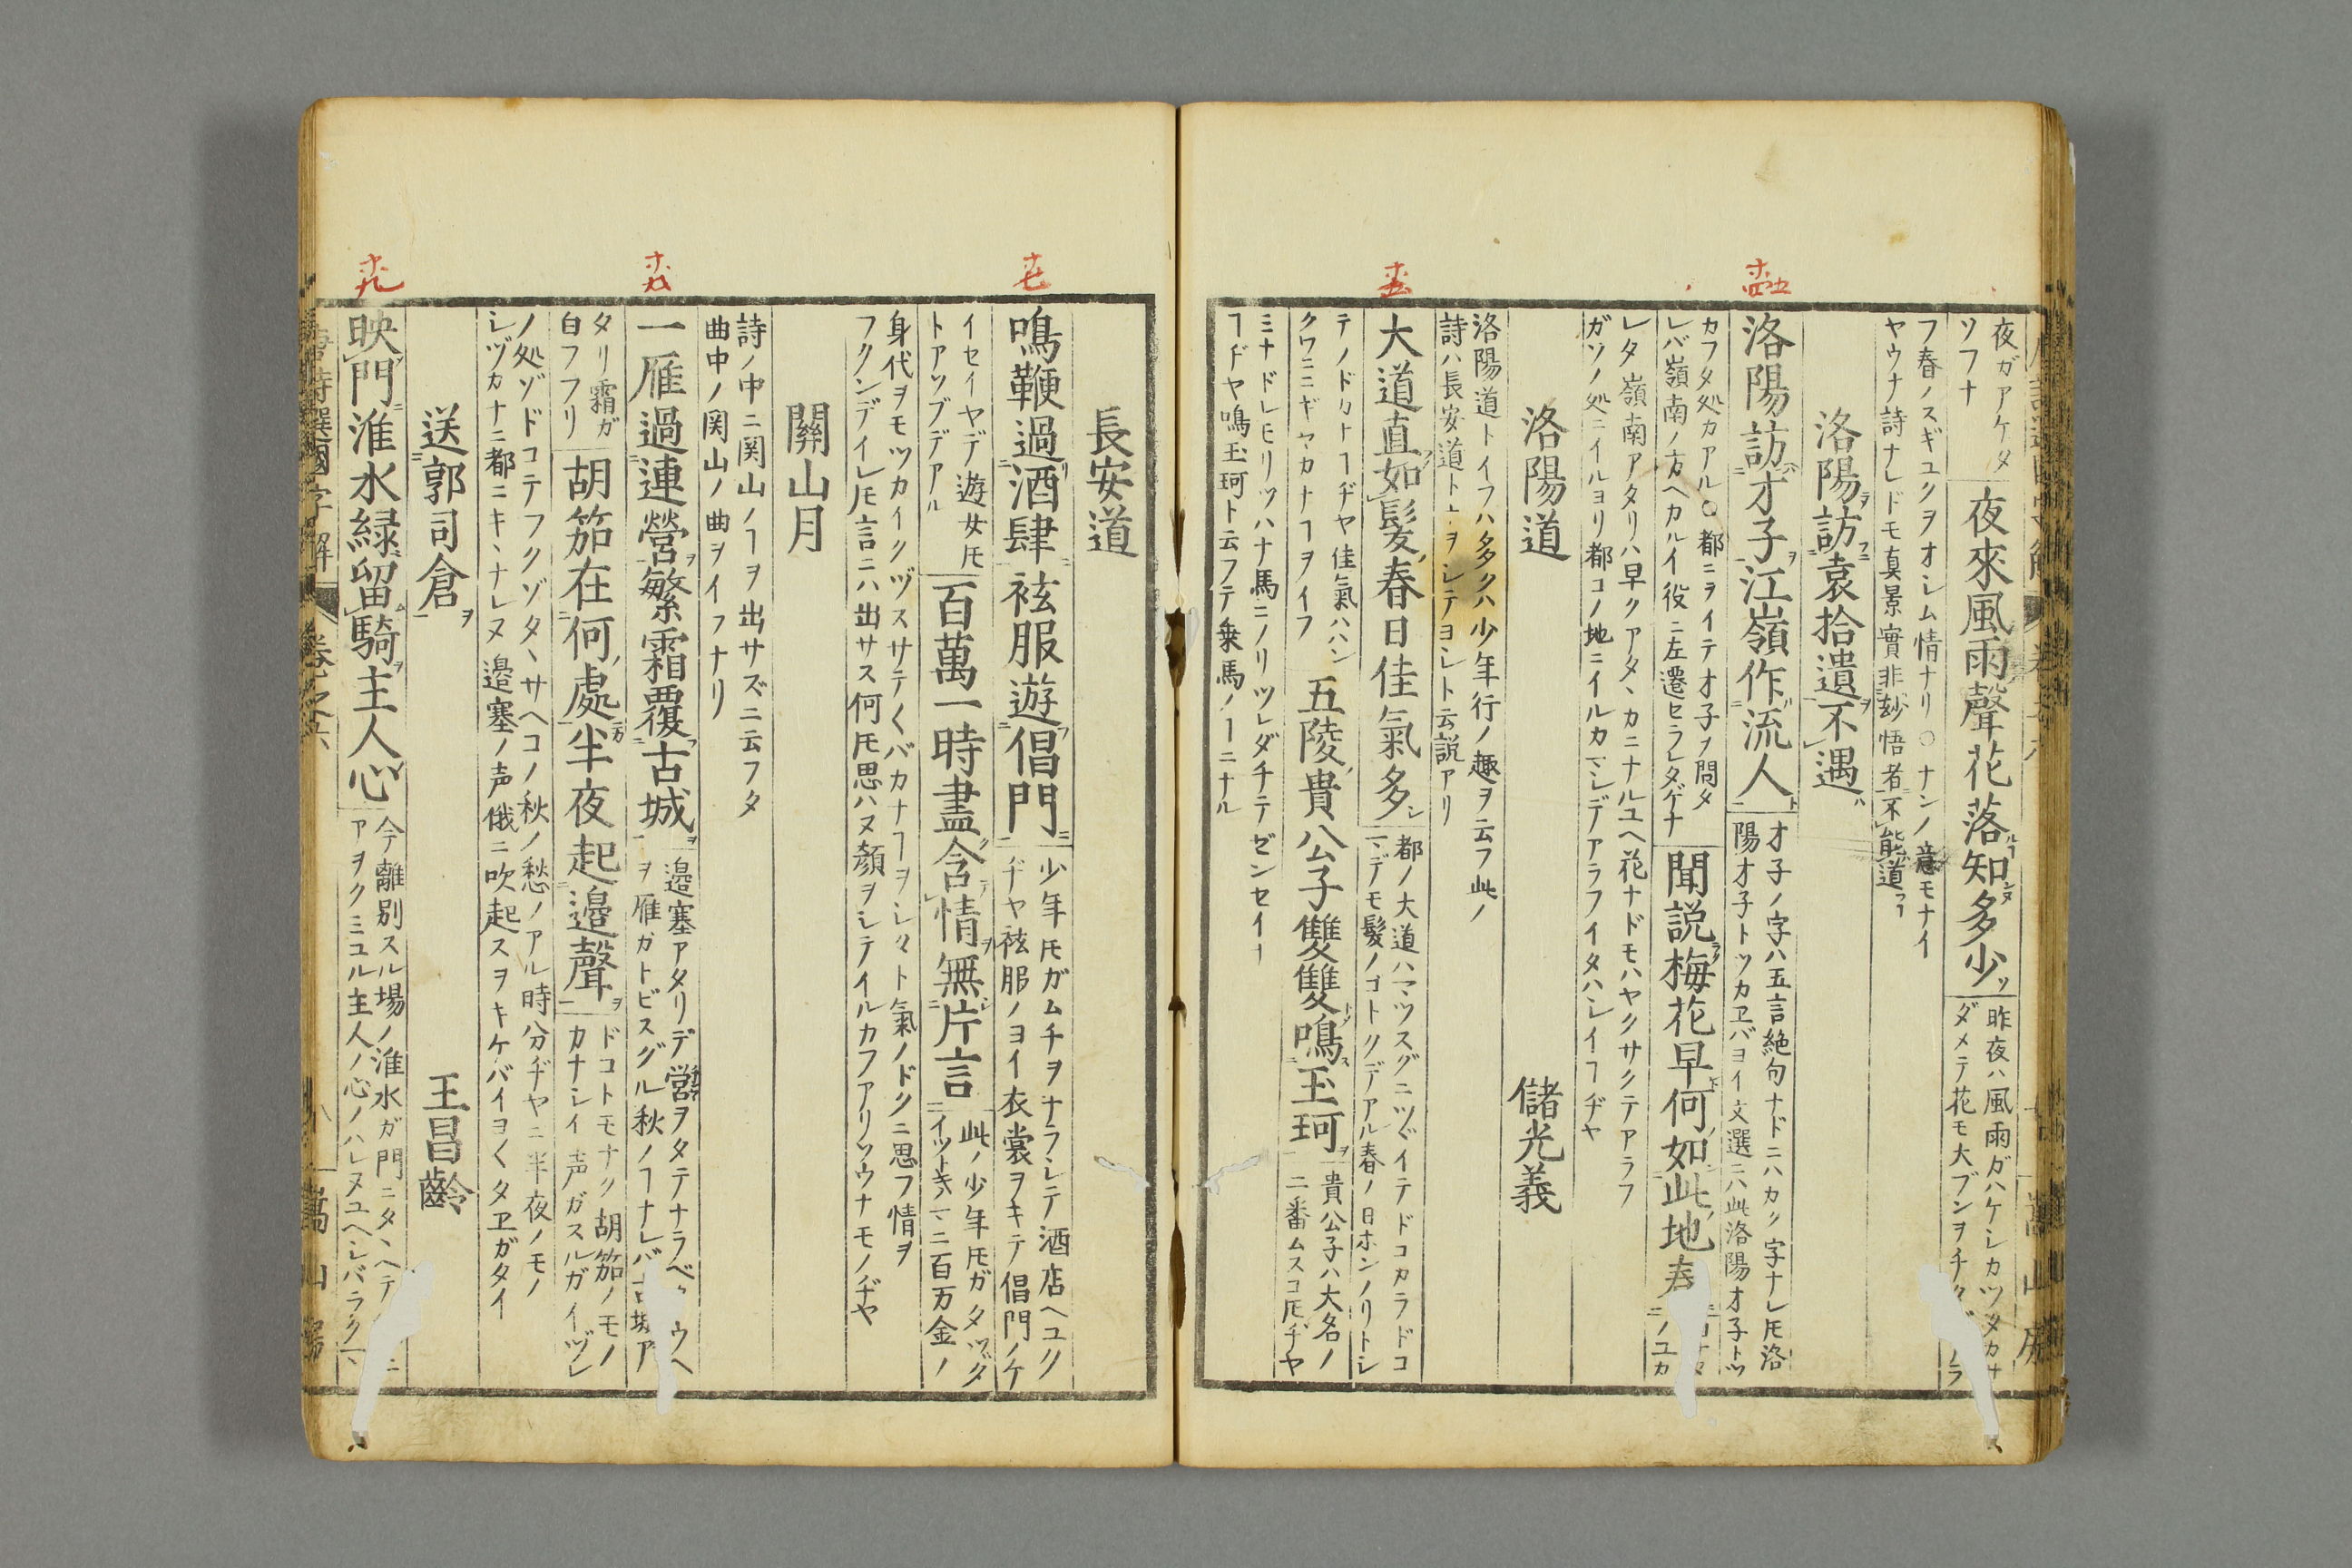 夜ガアケタ
ソフナ
夜來風雨聲花落知多少
昨夜ハ風雨ガハケシカツタカサ
ダメテ花モ大ブンヲチタ
フ春ノスギユクヲオシム情ナリ○ナンノ意モナイ
ヤウナ詩ナレドモ真景實非妙悟者不能道
洛陽訪袁拾遺不遇
十四五
洛陽訪才子江嶺作流人
才子ノ字ハ五言絶句ナドニハカク字ナレ𪜈洛
陽才子トツカヱバヨイ文選ニハ此洛陽才子トツ
カフタ処カアル○都ニヲイテ才子ヲ問タ
レバ嶺南ノ方ヘカルイ役ニ左遷セラレタゲナ
聞説梅花早何如此地春
レタ嶺南アタリハ早クアタヽカニナルユヘ花ナドモハヤクサクテアラフ
ガソノ処ニイルヨリ都コノ地ニイルカマシデアラフイタハシイヿヂヤ
洛陽道
儲光義
洛陽道トイフハ多クハ少年行ノ趣ヲ云フ此ノ
詩ハ長安道トヲシテヨシト云説アリ
大道直如髮春日佳氣多
都ノ大道ハマツスグニツヾイテドコカラドコ
マデモ髮ノゴトクデアル春ノ日ホンノリトシ
テノドカナヿヂヤ佳氣ハハン
クワニニギヤカナヿヲイフ
五陵貴公子雙雙鳴玉珂
貴公子ハ大名ノ
二番ムスコ𪜈ヂヤ
ミナドレモリツハナ馬ニノリツレダチテゼンセイナ
ヿヂヤ鳴玉珂ト云フテ乗馬ノヿニナル
長安道
十七
鳴鞭過酒肆袨服遊倡門
少年𪜈ガムチヲナラシテ酒店ヘユク
ヂヤ袨服ノヨイ衣裳ヲキテ倡門ノケ
イセイヤデ遊女𪜈
トアソブデアル
百萬一時盡含情無片言
此ノ少年𪜈ガタツダ
イツトキマニ百万金ノ
身代ヲモツカイクヅスサテ〱バカナヿヲシタト氣ノドクニ思フ情ヲ
フクンデイレ𪜈言ニハ出サス何𪜈思ハヌ顏ヲシテイルカフアリソウナモノヂヤ
關山月
詩ノ中ニ関山ノヿヲ出サズニ云フタ
曲中ノ関山ノ曲ヲイフナリ
十八
一雁過連營繁霜覆古城
邉塞アタリデ営ヲタテナラベ
ヲ雁ガトビスグル秋ノヿナレバ
タリ霜ガ
白フフリ
胡笳在何處半夜起邉聲
ドコトモナク胡笳ノモノ
カナシイ声ガスルガイヅレ
ノ処ゾドコテフクゾタヽサヘコノ秋ノ愁ノアル時分ヂヤニ半夜ノモノ
シヅカナニ都ニキヽナレヌ邉塞ノ声俄ニ吹起スヲキケバイヨ〱タヱガタイ
送郭司倉
王昌齡
十九
映門淮水緑留騎主人心
今離別スル場ノ淮水ガ門ニタヽヘテ
アヲクミユル主人ノ心ノハレヌユヘシバラク
唐詩選國字解
卷之六
嵩山房